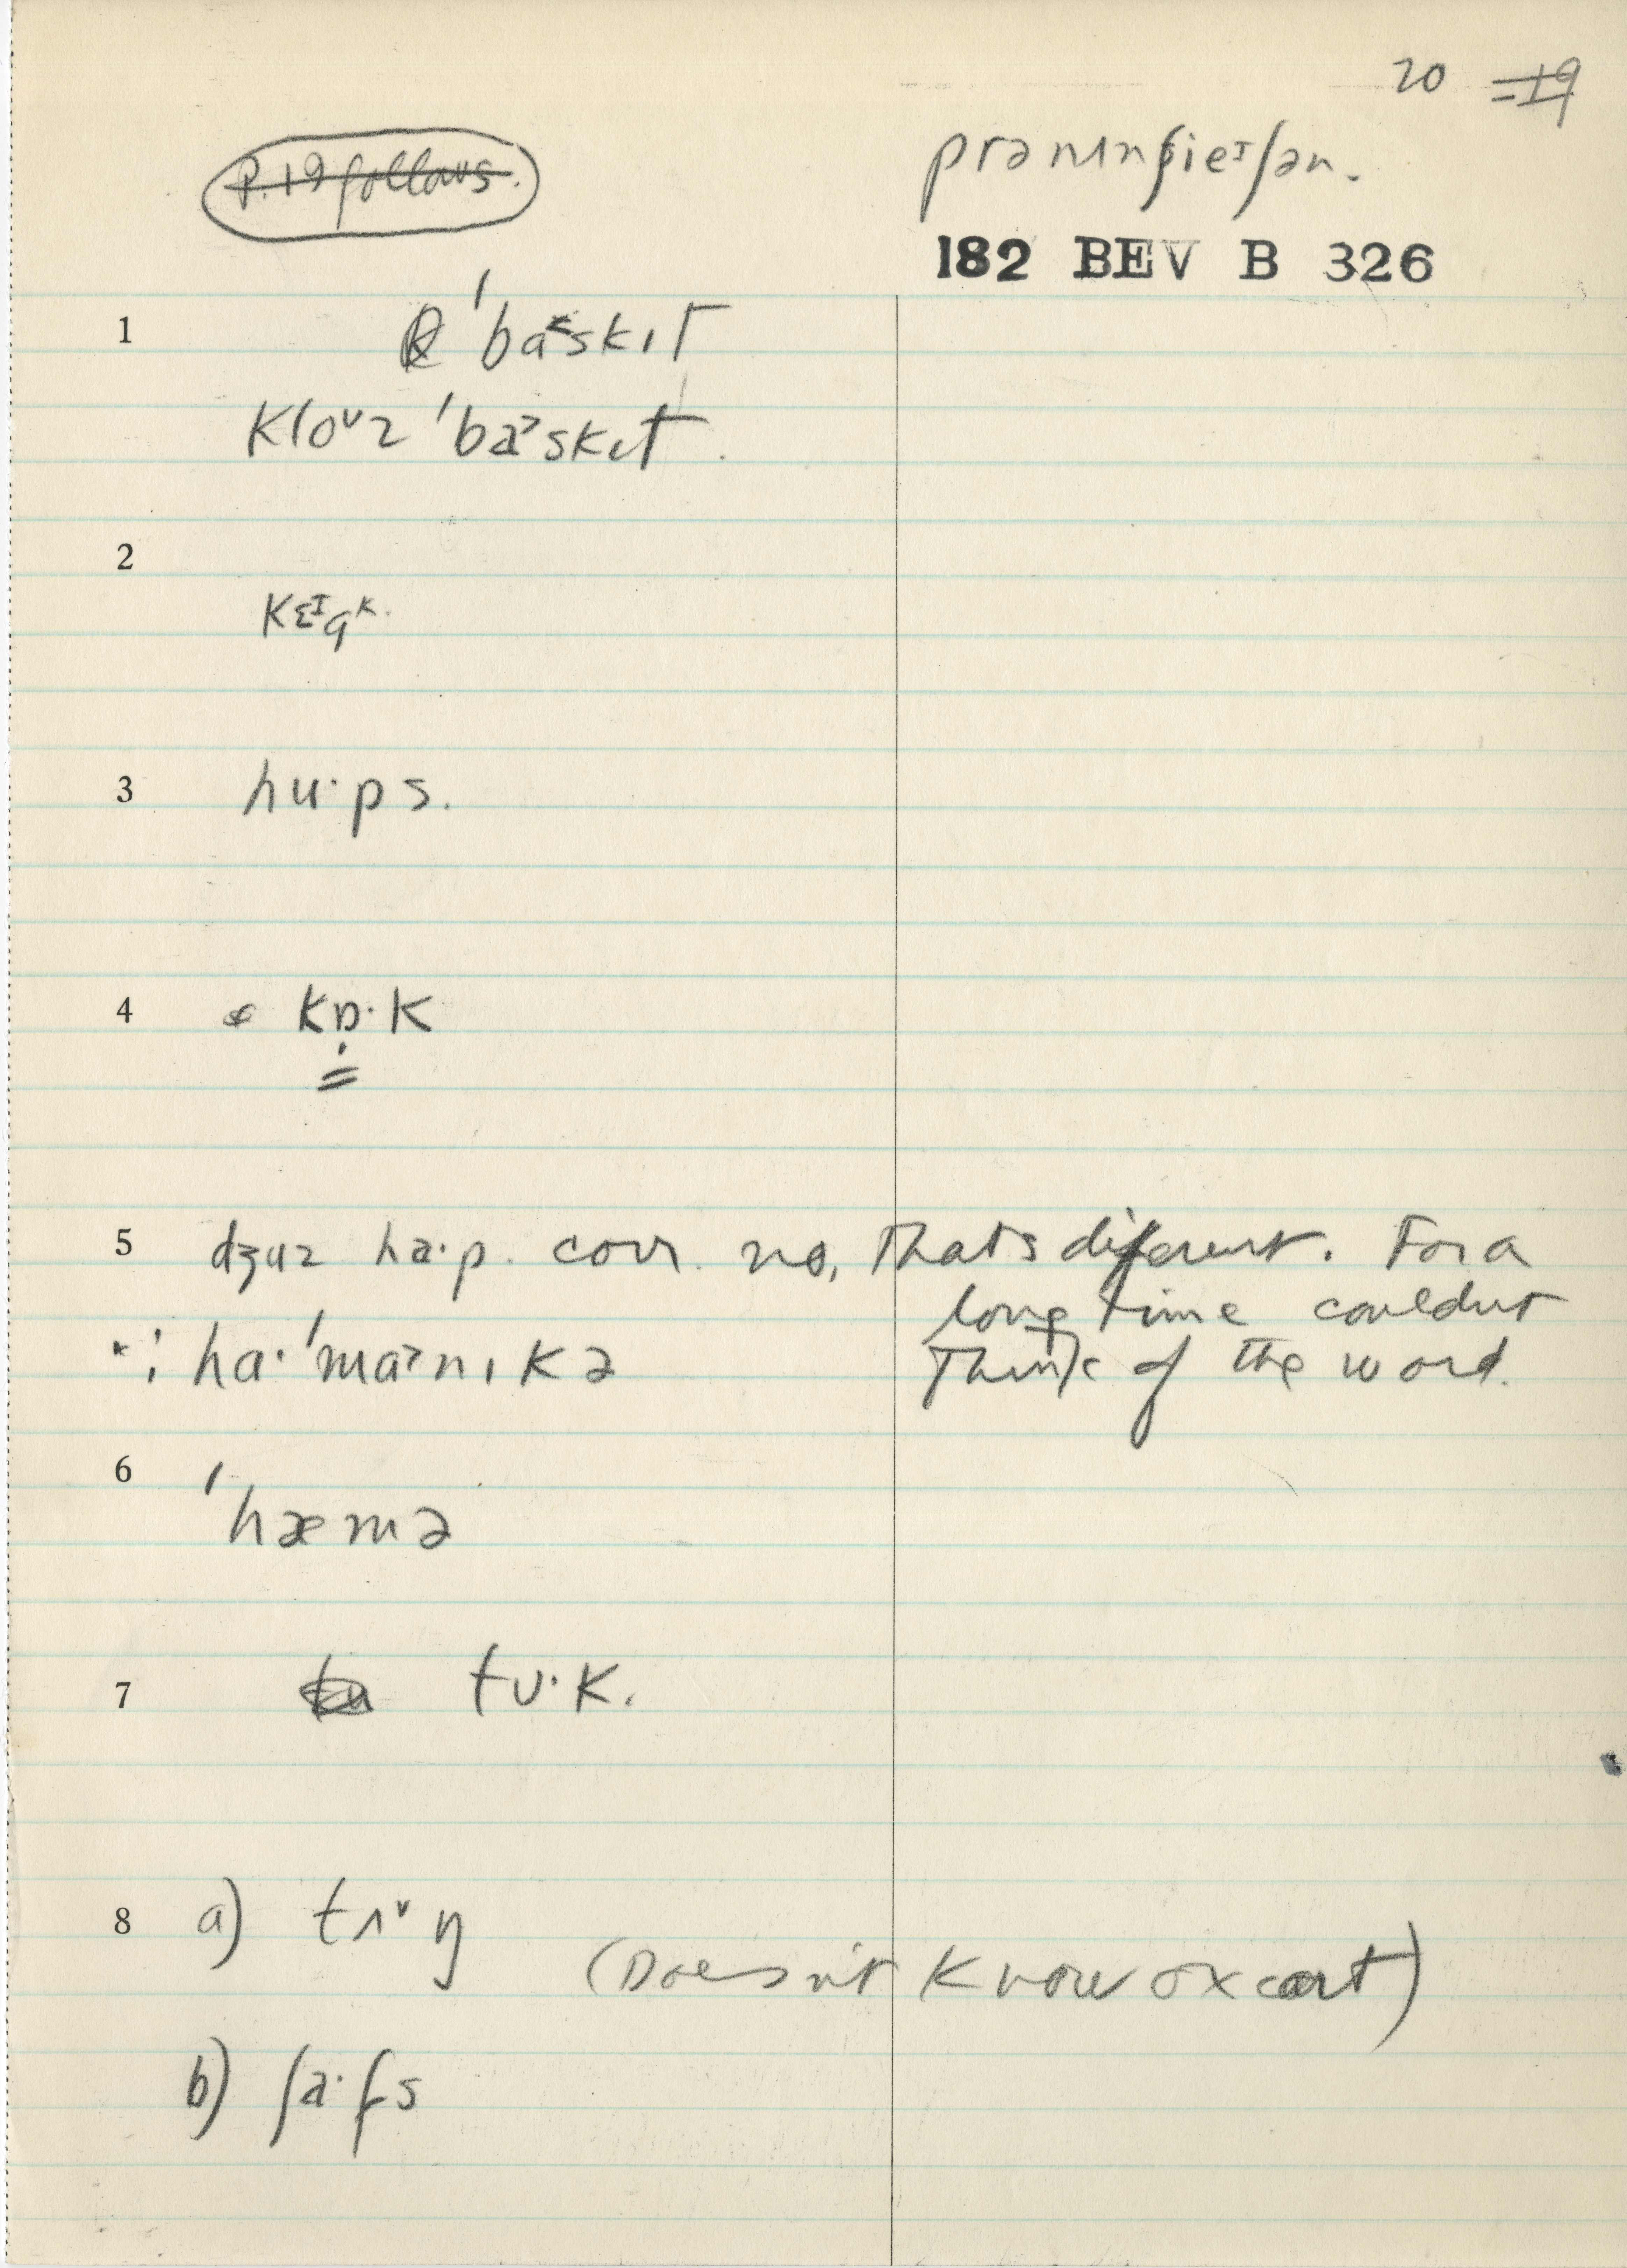 20 19
P. 19 follows.
prənʌnsieɪʃən.
182 BEV B 326
1 ˈba˂skɪt
kloᴜz ˈba˃skɪt.
2
kɛɪgᵏ.
3 hu·ps.
4 kɒ̣·k
5 dʒuz ha·p. corr. no, that's diferent. For a
long time couldnt
ha·ˈma˃nɪkə think of the word.
6 ˈhæmə
7 tʊ·k.
8 a) tʌ˅ŋ
(Doesn't know ox cart)
b) ʃa·fs